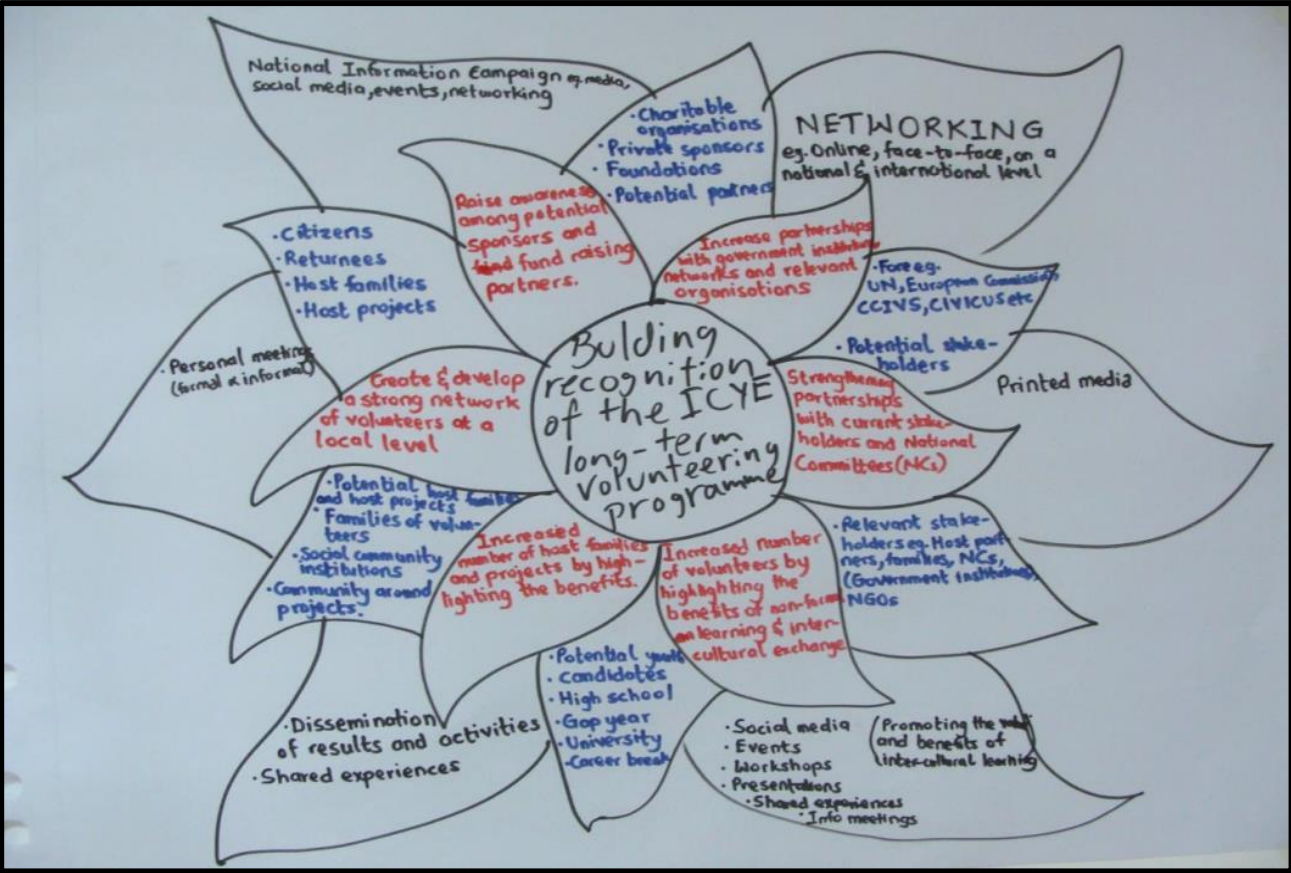 National Information Campaign eg. media,
social media, events, networking
· Charitable
organisations
· Private sponsors
· Foundations
· Potential partners
NETWORKING
eg. Online, face-to-face, on a
national & international level
Raise awareness
among potential
sponsors and
fund raising
partners.
Increase partnerships
with government
networks and relevant
organisations
· Citizens
· Returnees
· Host families
· Host projects
eg.
UN, European
CCIVS, CIVICUS etc
· Potential stake-
holders
· Personal meetings
(formal & informal)
Create & develop
a strong network
of volunteers at a
local level
Bulding
recognition
of the ICYE
long-term
volunteering
programme
partnerships
with current stake-
holders and National
Committees (NCs)
Printed media
· Potential host families
and host projects
· Families of volun-
teers
· Social community
institutions
· Community around
projects.
Increased
number of host families
and projects by high-
lighting the benefits.
Increased number
of volunteers by
highlighting the
benefits of
learning & inter-
cultural exchange
· Relevant stake-
holders eg. Host part-
ners, families, NCs,
(Government
NGOs
· Potential
· candidates
· High school
· Gap year
· University
· Career break
· Dissemination
of results and activities
· Shared experiences
· Social media
· Events
· Workshops
· Presentations
· Shared experiences
· Info meetings
(Promoting the
and benefits of
inter-cultural learning